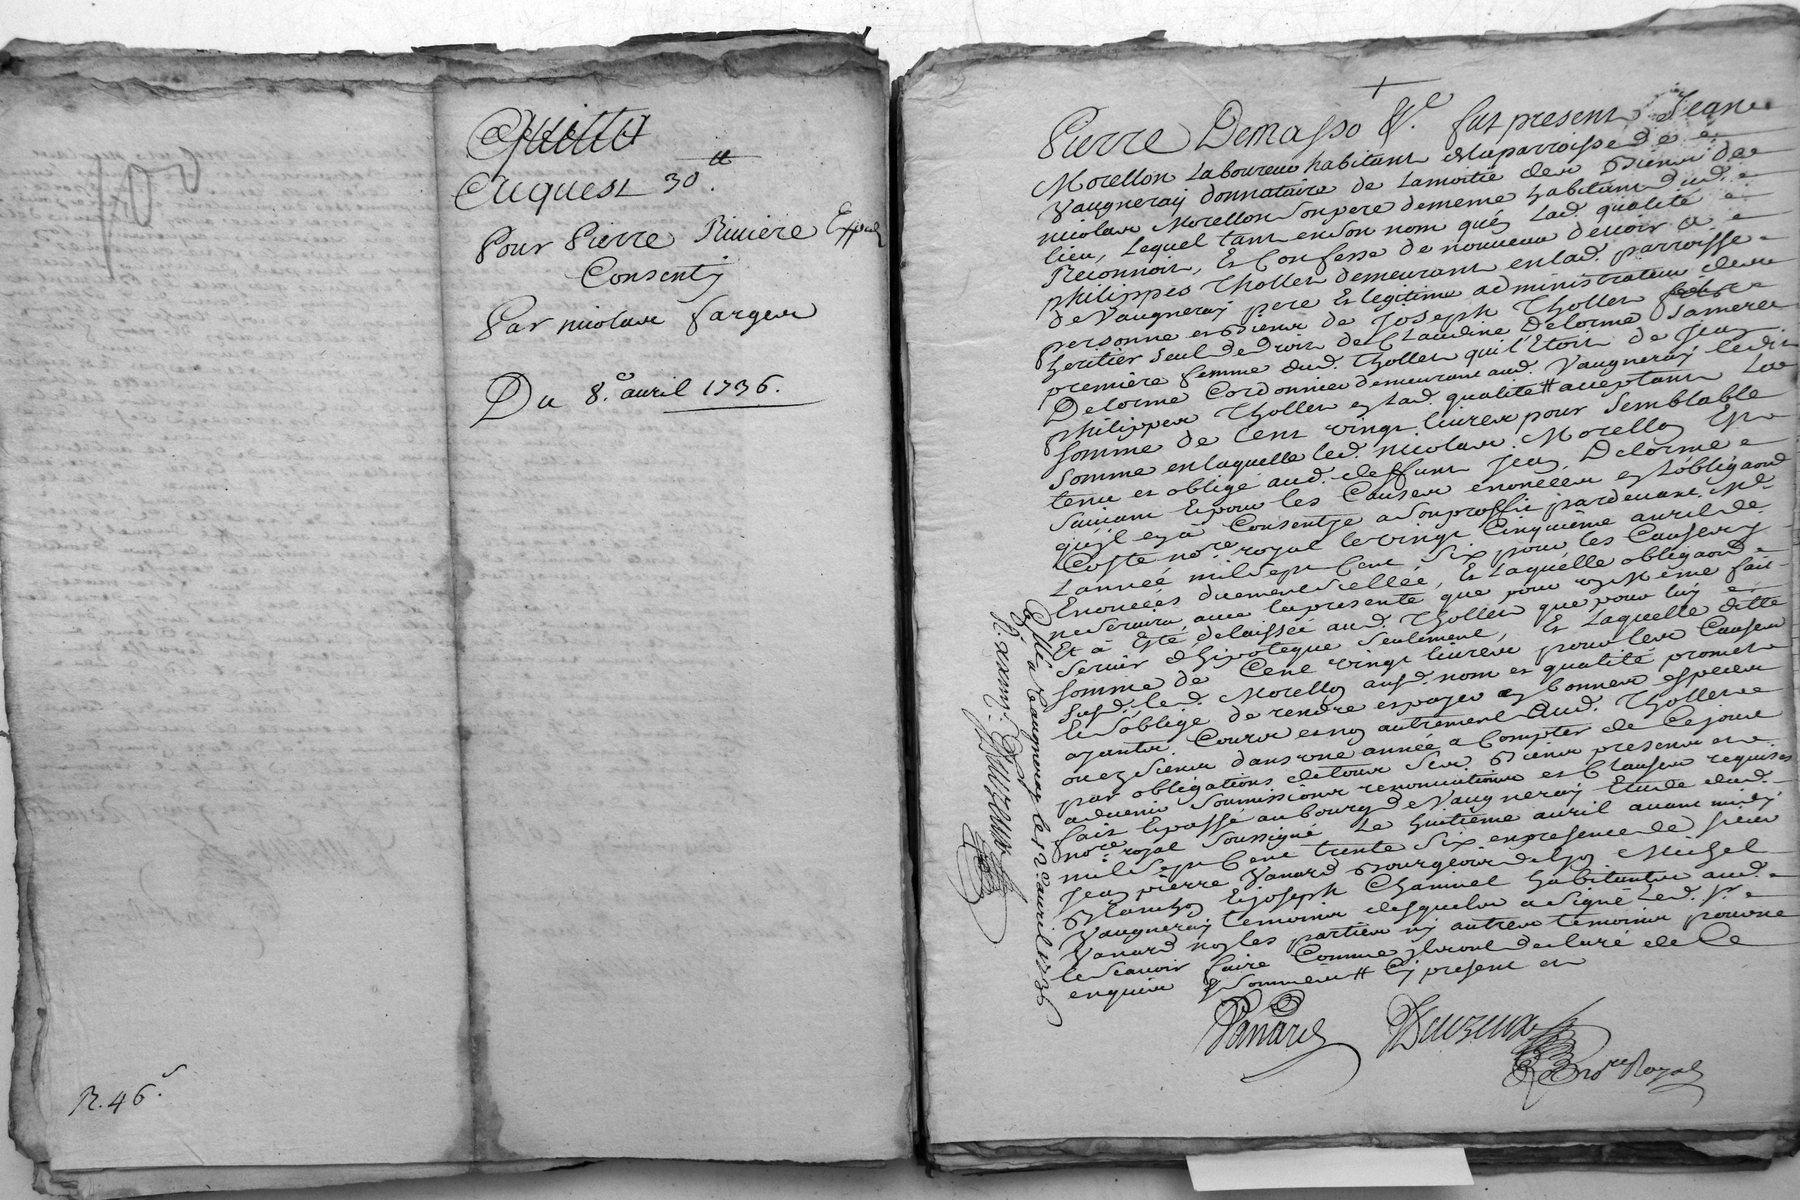 100
Acquest 30.tt
Pour Pierre Riviere
Consenty
Par nicolas fargeon
Du 8.e auril 1736.
R. 46.s
Pierre Demasso &.c fut present Jean
Morellon Laboureur habitant dela parroisse de
Vaugneray donnataire de Lamoitié des Biens de
nicolas Morellon son pere dememe habitant dud.
lieu, Lequel tant en son nom qu'en Lad. qualité
Reconnoit, et Confesse de nouveau devoir a
philippes Thollet demeurant en lad. parroisse
de Vaugneray pere et legitime administrateur de la
personne et Biens de Joseph Thollet
heritier seul de droit de Claudine Delorme sa mere
premiere femme dud. Thollet qui l'Etoit de Jean
Delorme Cordonnier demeurant aud. Vaugneray ledit
philippes Thollet en Lad. qualité # acceptant La
somme de Cent vingt livres pour semblable
somme en laquelle led. nicolas Morellon Est
tenu et obligé aud. deffunt Jean Delorme
suivant Epour les Causes enoncées en L'obligaon
qu'il en a Consentye a son proffit pardevant Me
Coste nore royal le vingt Cinquième auril de
L'année mil sept Cent Six pour les Causes y
Enoncées duement scellée, Et Laquelle obligaon
ne servira avec la presente que pour un même fait
Et à Eté delaissée aud. Thollet que pour luy
servir d'hipoteque seulement, Et Laquelle ditte
somme de Cent vingt livres pour les Causes
susd. led. Morellon ausd. nom et qualité promet
et s'oblige de rendre et payer en bonnes especes
ayants Cours et non autrement aud. Thollet
ou ez siens dans une année a Compter de Cejourd
par obligations de tous ses Biens presens et
advenir soumissions renonciations et Clauses requises
fait Epassé au bourg de Vaugneray Etude dud.
nore royal soussigné Le huitième auril avant midy
mil sept Cent trente six en presence de sieur
Jean pierre Vanard Bourgeois de Lyon Michel
Blanchon Ejoseph Chaminel habitants aud.
Vaugneray temoins desquels a signé Led. sr.
Vanard non les parties ny autres temoins pour ne
le scavoir faire Comme ils ont declaré de Ce
enquis et sommés # Cy present et
Vanard
Dauzeux
nore Royal
Collé a Vaugneray le 12.e auril 1736